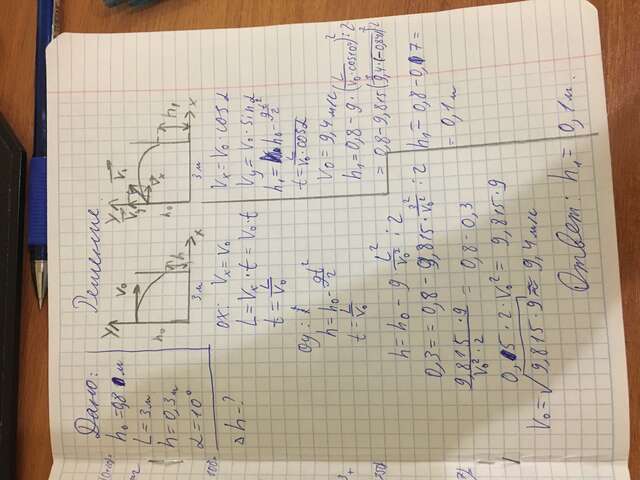 Дано:
h₀ = 0,8 м
L = 3 м
h = 0,3 м
α = 10°
Δh - ?
Решение.
y
V₀
h₀
h
3 м
x
ox: Vₓ = V₀
L = Vₓ · t = V₀ · t
t = L/V₀
oy:
h = h₀ - gt²/2
t = L/V₀
h = h₀ - g L²/V₀² : 2
0,3 = = 0,8 - 9,815 · 3²/V₀² : 2
9,815 · 9 / V₀² · 2 = 0,8 - 0,3
0,5 · 2 · V₀² = 9,815 · 9
V₀ = √9,815 · 9 ≈ 9,4 м/с
y
Vy
V₀
Vx
h₀
h₁
3 м
x
Vₓ = V₀ · cos α
Vy = V₀ · sin α
h₁ = h₀ - gt²/2
t = L/V₀ · cos α
V₀ = 9,4 м/с
h₁ = 0,8 - g · (L/V₀ · cos 10°)² : 2
= 0,8 - 9,815 (3/9,4 · (-0,84))² : 2
h₁ = 0,8 - 0,7 =
= 0,1 м
Ответ: h₁ = 0,1 м.